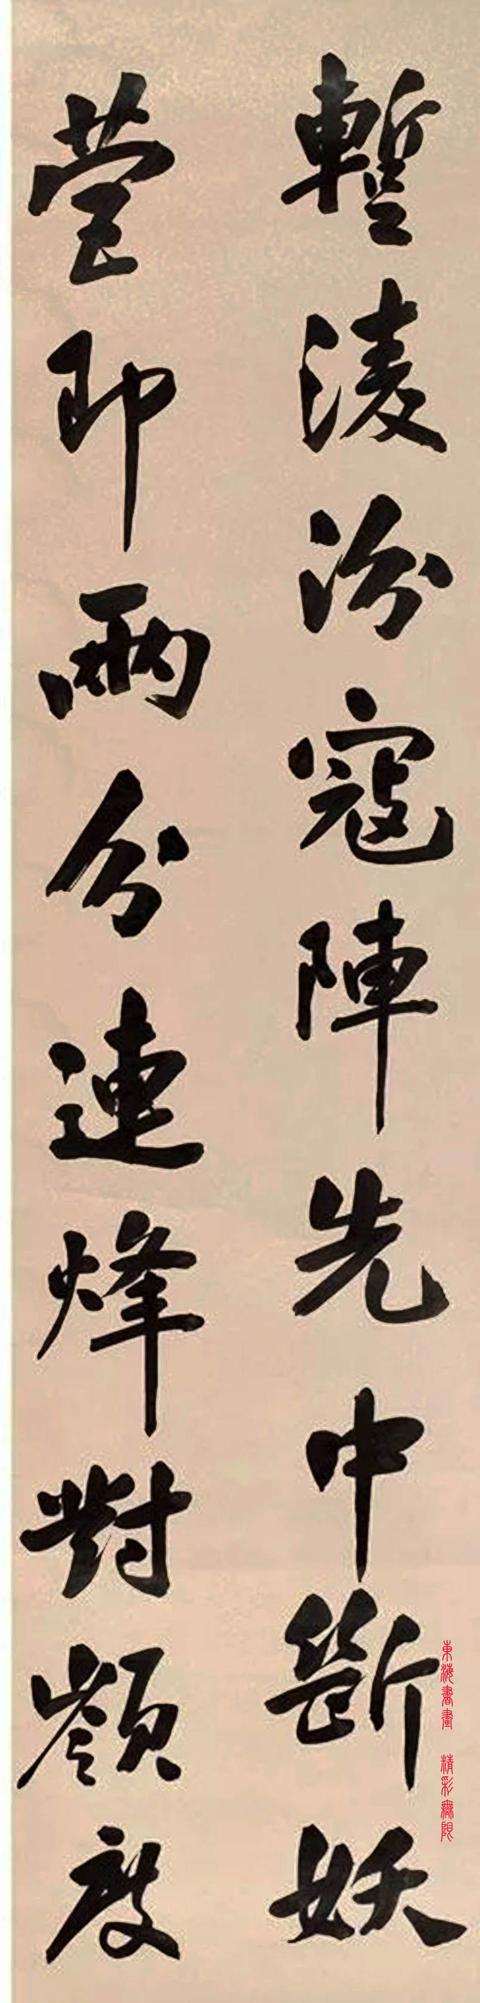 蹔淩汾寇陣先中斷妖
營即兩分連烽對嶺度
東海書畫 精彩無限